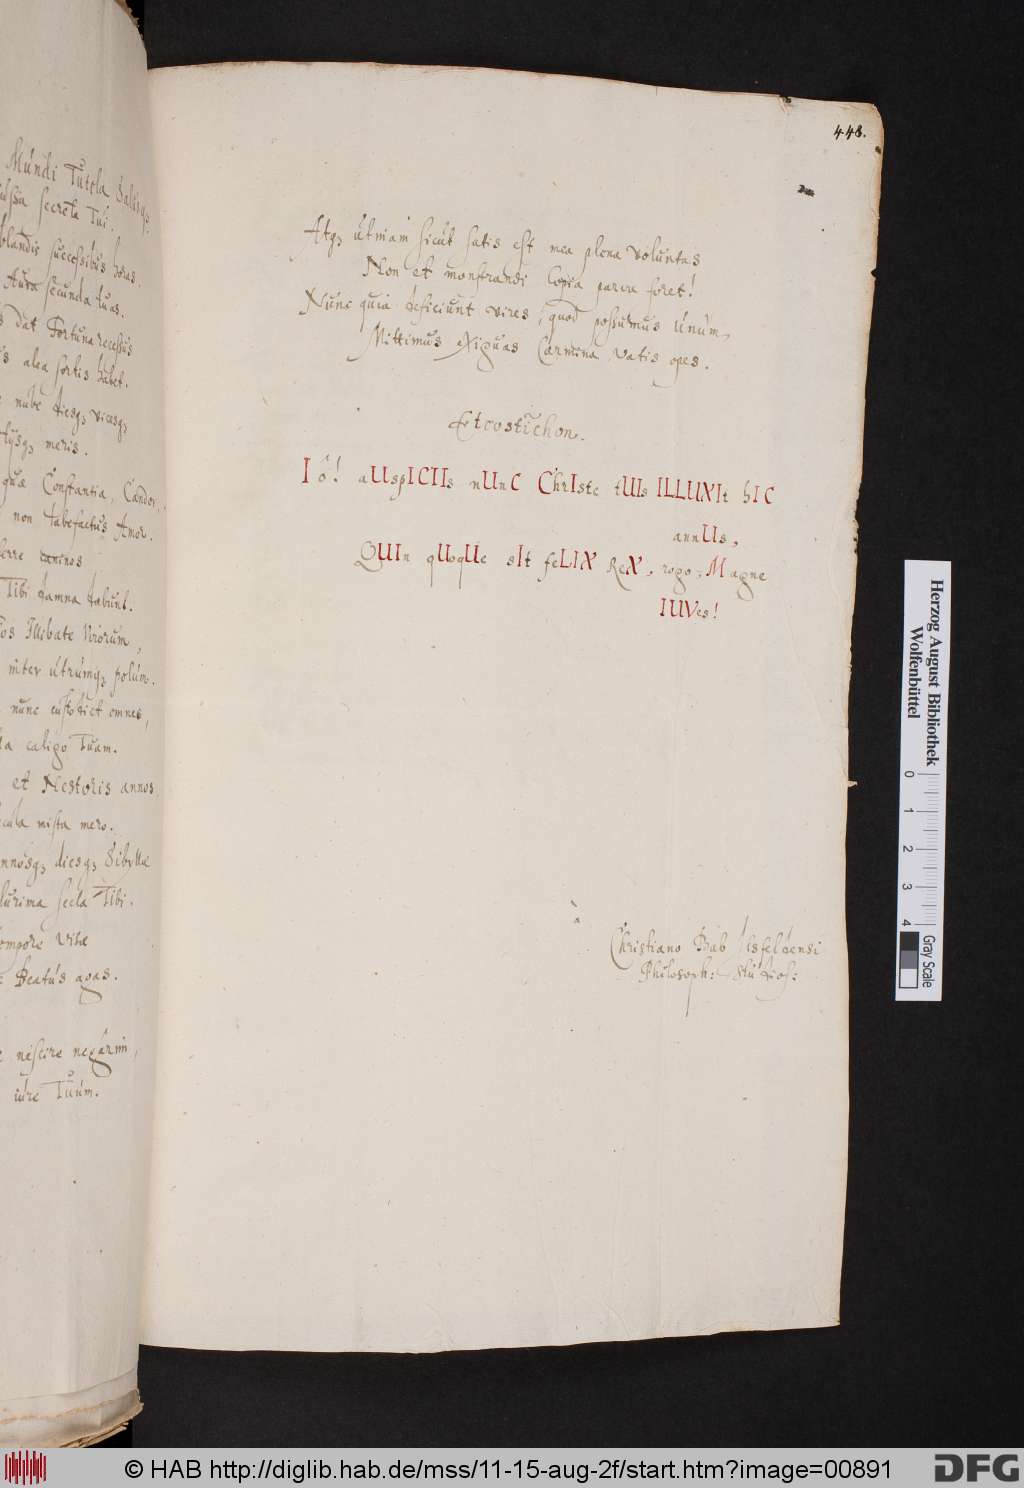 Mundi Tutela
secreta Tui.
blandis successibus horas.
Aura secunda tuas.
dat Fortuna recessus
alea sortis habet.
nube diesq; vicesq;
meris.
quæ Constantia, Candor,
non tabefactus Amor.
ferre caninos
Tibi damna dabunt.
Illibate Virorum,
inter utrumq; polum.
nunc custodiet omnes,
caligo Tuam.
et Nestoris annos
mista mero.
annosq; diesq; Sibyllæ
plurima secla Tibi.
tempore vitæ
Beatus agas.
nescire negârim,
iure Tuum.
448.
Atq; utinam sicut satis est mea plena voluntas
Non et monstrandi Copia parva foret!
Nunc quia deficiunt vires, quod possumus unum,
Mittimus exiguas Carmina vatis opes.
Eteostichon.
Iô! aUspICIIs nUnC ChrIste tUIs ILLUXIt hIC
annUs,
QUIn qUoqUe sIt feLIX ReX, rogo, Magne
IUVes!
à
Christiano Bab Ilsfeldensi
Philosoph: Studios:
Herzog August Bibliothek
Wolfenbüttel
0 1 2 3 4
Gray Scale
© HAB http://diglib.hab.de/mss/11-15-aug-2f/start.htm?image=00891
DFG